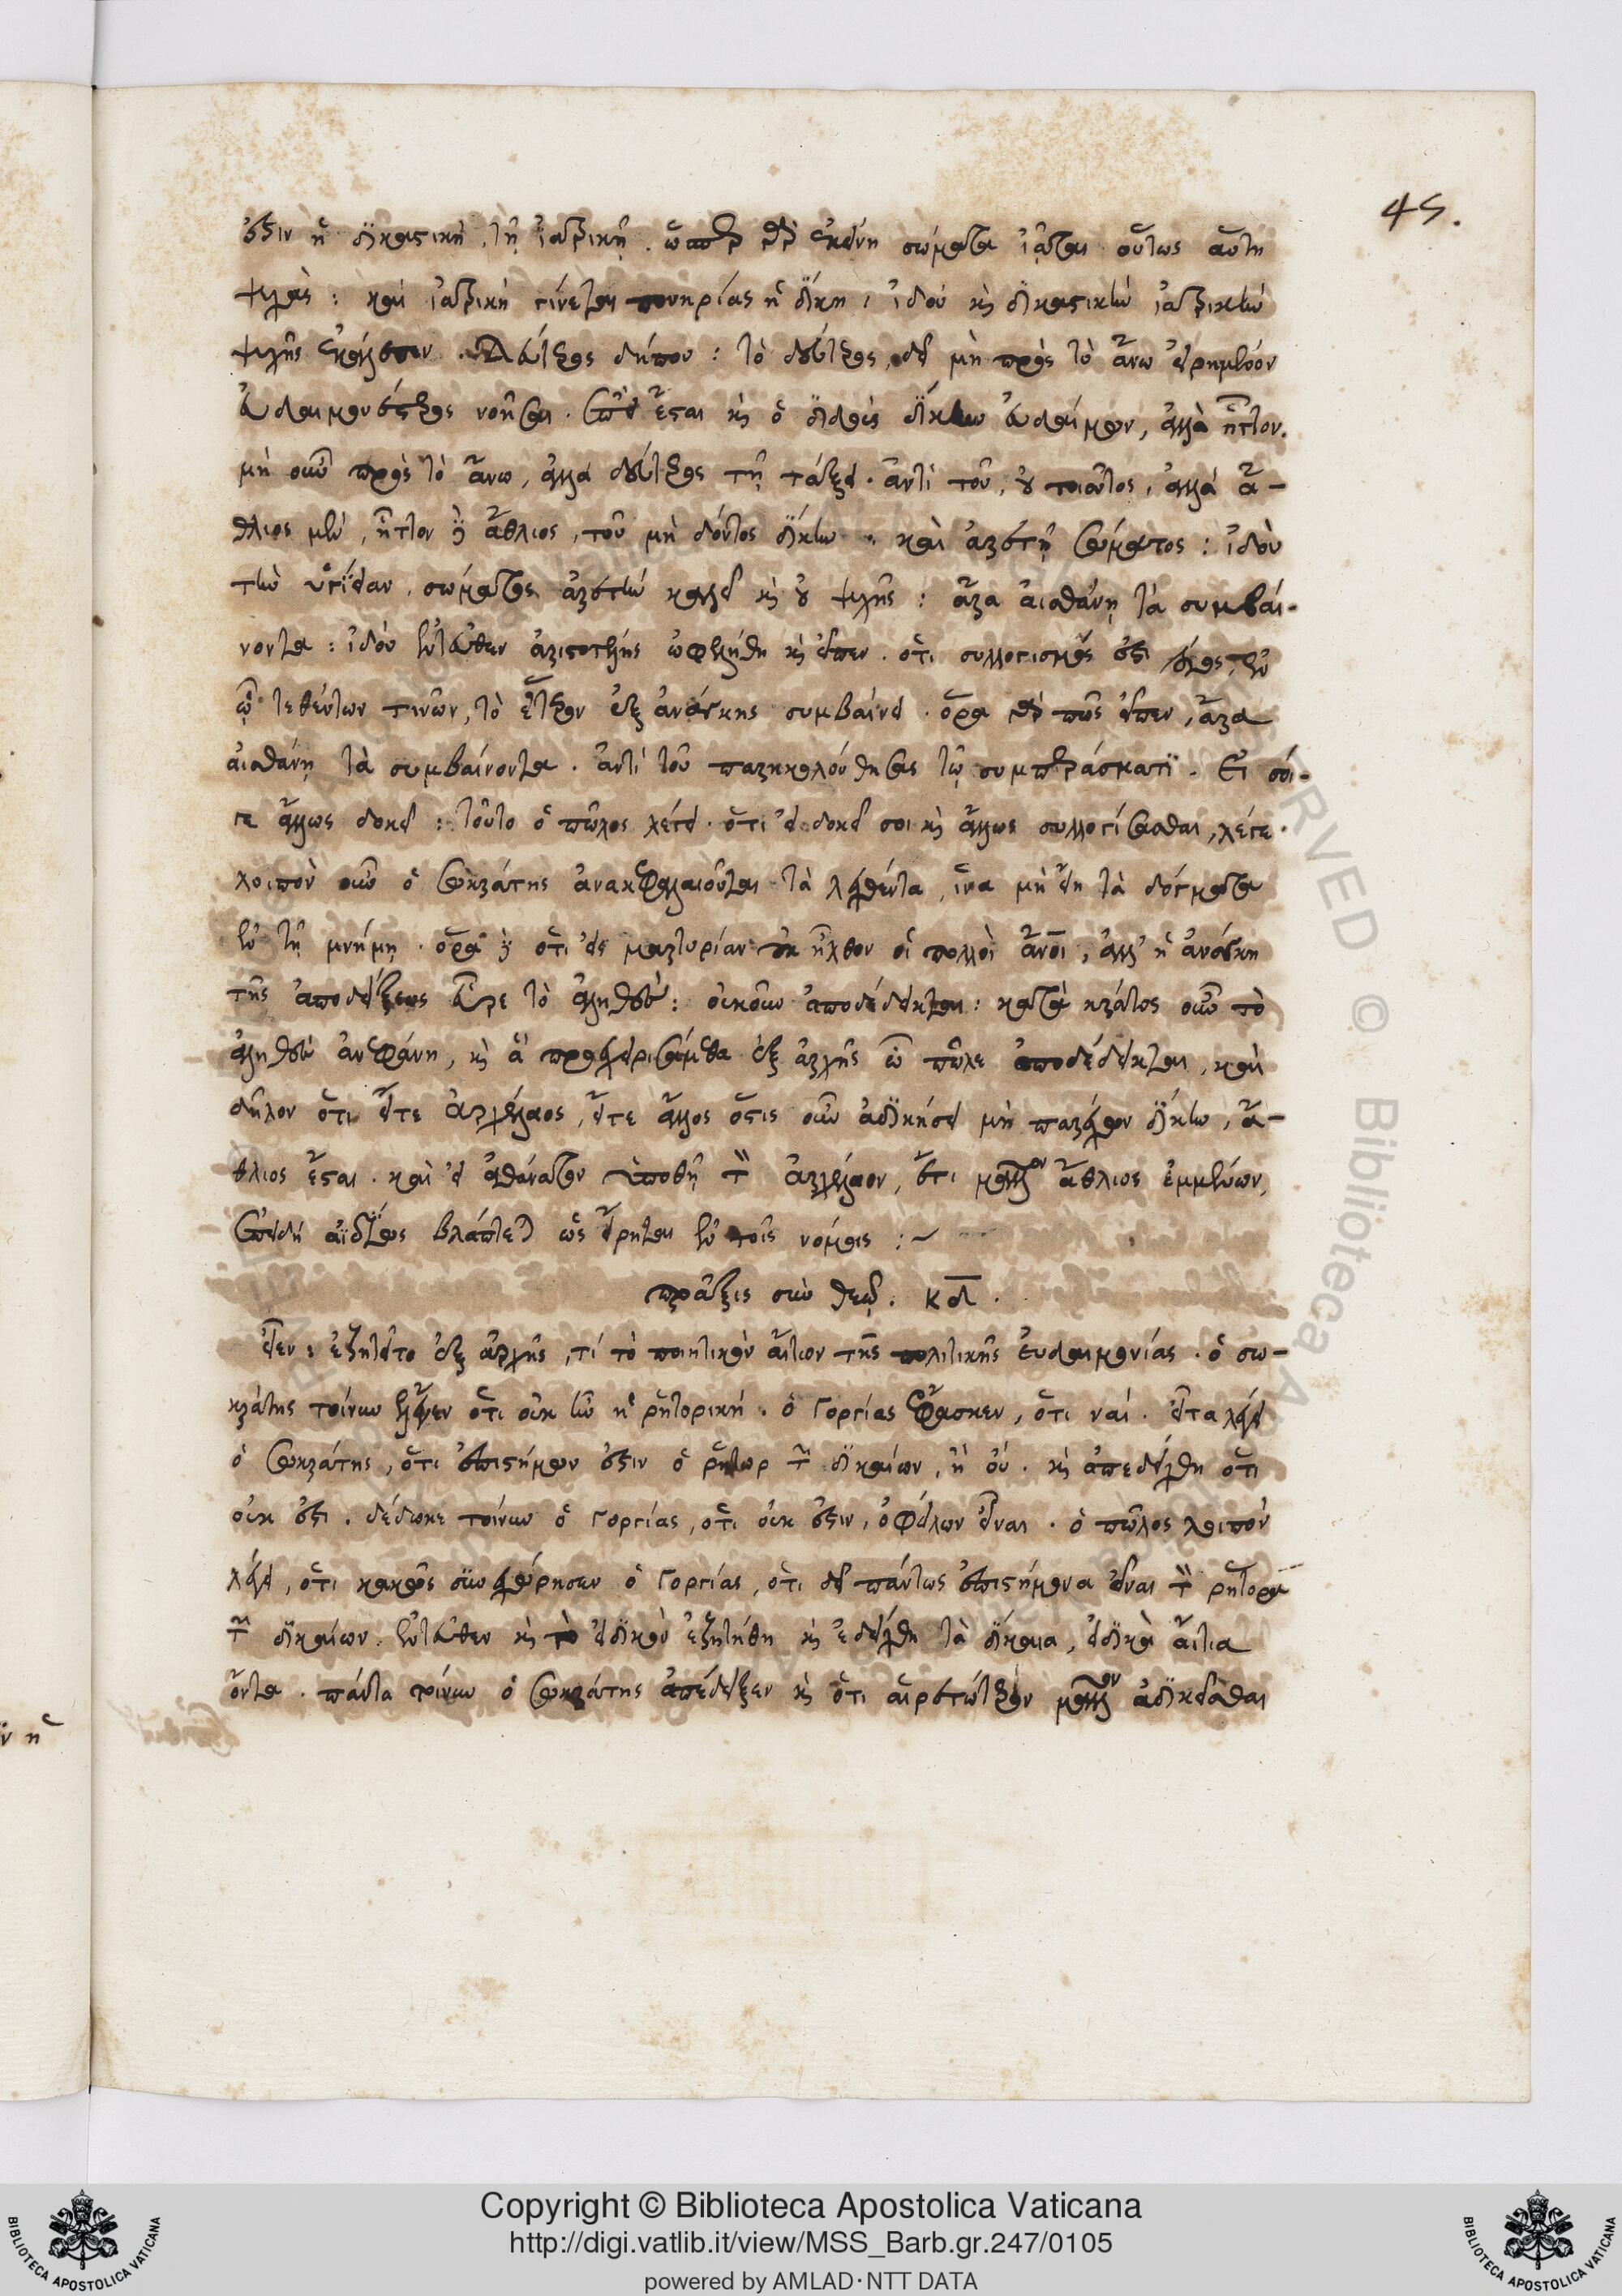 45.
ἐστὶν ἡ δικαστικὴ τῇ ἰατρικῇ. ὥσπερ γὰρ ἐκείνη σώματα ἰᾶται οὕτως αὕτη
ψυχάς: καὶ ἰατρικὴ γίνεται πονηρίας ἡ δίκη: ἰδοὺ καὶ δικαστικὴν ἰατρικὴν
ψυχῆς ἐκάλεσεν. Δεύτερος δήπου: τὸ δεύτερος, δεῖ μὴ πρὸς τὸ ἄνω εἰρημένον
εὐδαιμονέστερος νοῆσαι. ἐπεὶ ἔσται καὶ ὁ διδοὺς δίκην εὐδαίμων, ἀλλὰ ἧττον.
μὴ οὖν πρὸς τὸ ἄνω, ἀλλὰ δεύτερος τῇ τάξει. ἀντὶ τοῦ, οὐ τοιοῦτος, ἀλλὰ ἄ-
θλιος μὲν, ἧττον δὲ ἄθλιος, τοῦ μὴ δόντος δίκην. καὶ ἀρετῇ σώματος: ἰδοὺ
τὴν ὑγίειαν, σώματος ἀρετὴν καλεῖ καὶ οὐ ψυχῆς: ἆρα αἰσθάνῃ τὰ συμβαί-
νοντα: ἰδοὺ ἐντεῦθεν ἀριστοτέλης ὠφελήθη καὶ εἶπεν. ὅτι συλλογισμός ἐστι λόγος, ἐν
ᾧ τεθέντων τινῶν, τὸ ἕτερον ἐξ ἀνάγκης συμβαίνει. ὅρα γὰρ πῶς εἶπεν, ἆρα
αἰσθάνῃ τὰ συμβαίνοντα. ἀντὶ τοῦ παρηκολούθησας τῷ συμπεράσματι. Εἰ σοί-
γε ἄλλως δοκεῖ: τοῦτο ὁ πῶλος λέγει. ὅτι εἰ δοκεῖ σοι καὶ ἄλλως συλλογίσασθαι, λέγε.
λοιπὸν οὖν ὁ σωκράτης ἀνακεφαλαιοῦται τὰ λεχθέντα, ἵνα μὴ ἔῃ τὰ δόγματα
ἐν τῇ μνήμῃ. ὅρα δὲ ὅτι εἰς μαρτυρίαν οὐκ ἦλθον οἱ πολλοὶ ἄνοι, ἀλλ' ἡ ἀνάγκη
τῆς ἀποδείξεως εὗρε τὸ ἀληθές: οὐκοῦν ἀποδέδεικται: κατὰ κράτος οὖν τὸ
ἀληθὲς ἀνεφάνη, καὶ ἃ προεχειρισάμεθα ἐξ ἀρχῆς ὦ πῶλε ἀποδέδεικται, καὶ
δῆλον ὅτι εἴτε ἀρχέλαος, εἴτε ἄλλος ὅστις οὖν ἀδικήσει μὴ παρέχων δίκην, ἄ-
θλιος ἔσται. καὶ εἰ ἀθάνατον ὑποθῇ τὸν ἀρχέλαον, ἔτι μᾶλλον ἄθλιος ἐμμένων,
ἐπειδὴ ἀϊδίως βλάπτεται ὡς εἴρηται ἐν τοῖς νόμοις :~
πρᾶξις σὺν θεῷ. κδ.
εἶεν: ἐζητεῖτο ἐξ ἀρχῆς, τί τὸ ποιητικὸν αἴτιον τῆς πολιτικῆς εὐδαιμονίας. ὁ σω-
κράτης τοίνυν ἔλεγεν ὅτι οὐκ ἦν ἡ ῥητορική. ὁ Γοργίας ἔφασκεν, ὅτι ναί. εἶτα λέγει
ὁ σωκράτης, ὅτι ἐπιστήμων ἐστὶν ὁ ῥήτωρ τῶν δικαίων, ἢ οὔ. καὶ ἀπεδείχθη ὅτι
οὐκ ἔστι. δέδωκε τοίνυν ὁ Γοργίας, ὅτι οὐκ ἔστιν, ὀφείλων εἶναι. ὁ πῶλος λοιπὸν
λέγει, ὅτι κακῶς συνεχώρησεν ὁ Γοργίας, ὅτι δεῖ πάντως ἐπιστήμονα εἶναι τὸν ῥήτορα
τῶν δικαίων. ἐντεῦθεν καὶ τὸ εἰδικὸν ἐζητήθη καὶ ἐδείχθη τὰ δίκαια, εἰδικὰ αἴτια
ὄντα. πάντα τοίνυν ὁ σωκράτης ἀπέδειξεν καὶ ὅτι αἱρετώτερον μᾶλλον ἀδικεῖσθαι
Copyright © Biblioteca Apostolica Vaticana
http://digi.vatlib.it/view/MSS_Barb.gr.247/0105
powered by AMLAD·NTT DATA